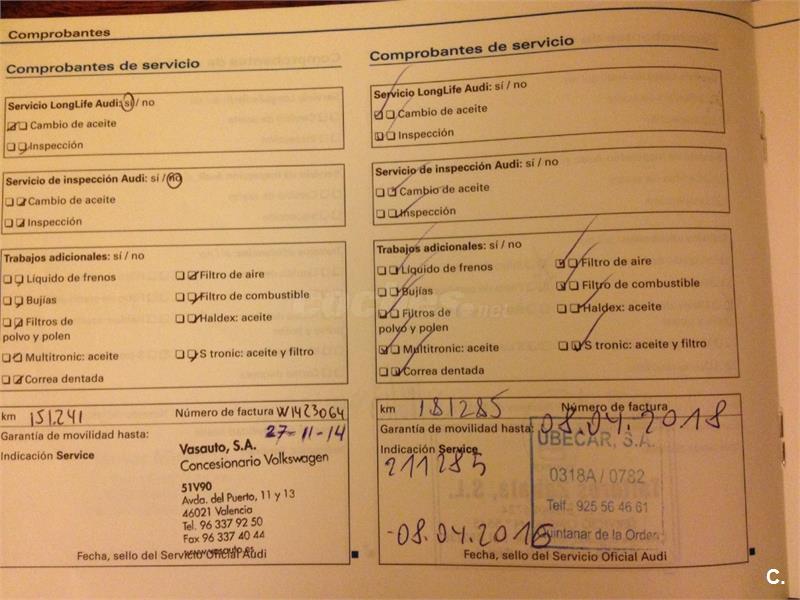 Comprobantes
Comprobantes de servicio
Servicio LongLife Audi: sí / no
Cambio de aceite
Inspección
Servicio de inspección Audi: sí / no
Cambio de aceite
Inspección
Trabajos adicionales: sí / no
Líquido de frenos
Filtro de aire
Bujías
Filtro de combustible
Filtros de
polvo y polen
Haldex: aceite
Multitronic: aceite
S tronic: aceite y filtro
Correa dentada
km 151.241 Número de factura W1423064
Garantía de movilidad hasta: 27-11-14
Indicación Service
Vasauto, S.A.
Concesionario Volkswagen
51V90
Avda. del Puerto, 11 y 13
46021 Valencia
Tel. 96 337 92 50
Fax 96 337 40 44
www.vasauto.es
Fecha, sello del Servicio Oficial Audi
Comprobantes de servicio
Servicio LongLife Audi: sí / no
Cambio de aceite
Inspección
Servicio de inspección Audi: sí / no
Cambio de aceite
Inspección
Trabajos adicionales: sí / no
Líquido de frenos
Filtro de aire
Bujías
Filtro de combustible
Filtros de
polvo y polen
Haldex: aceite
Multitronic: aceite
S tronic: aceite y filtro
Correa dentada
km 181285 Número de factura
Garantía de movilidad hasta: 08.04.2018
Indicación Service
211285
UBECAR, S.A.
0318A / 0782
Telf.: 925 56 46 61
Quintanar de la Orden
-08.04.2016
Fecha, sello del Servicio Oficial Audi
C.